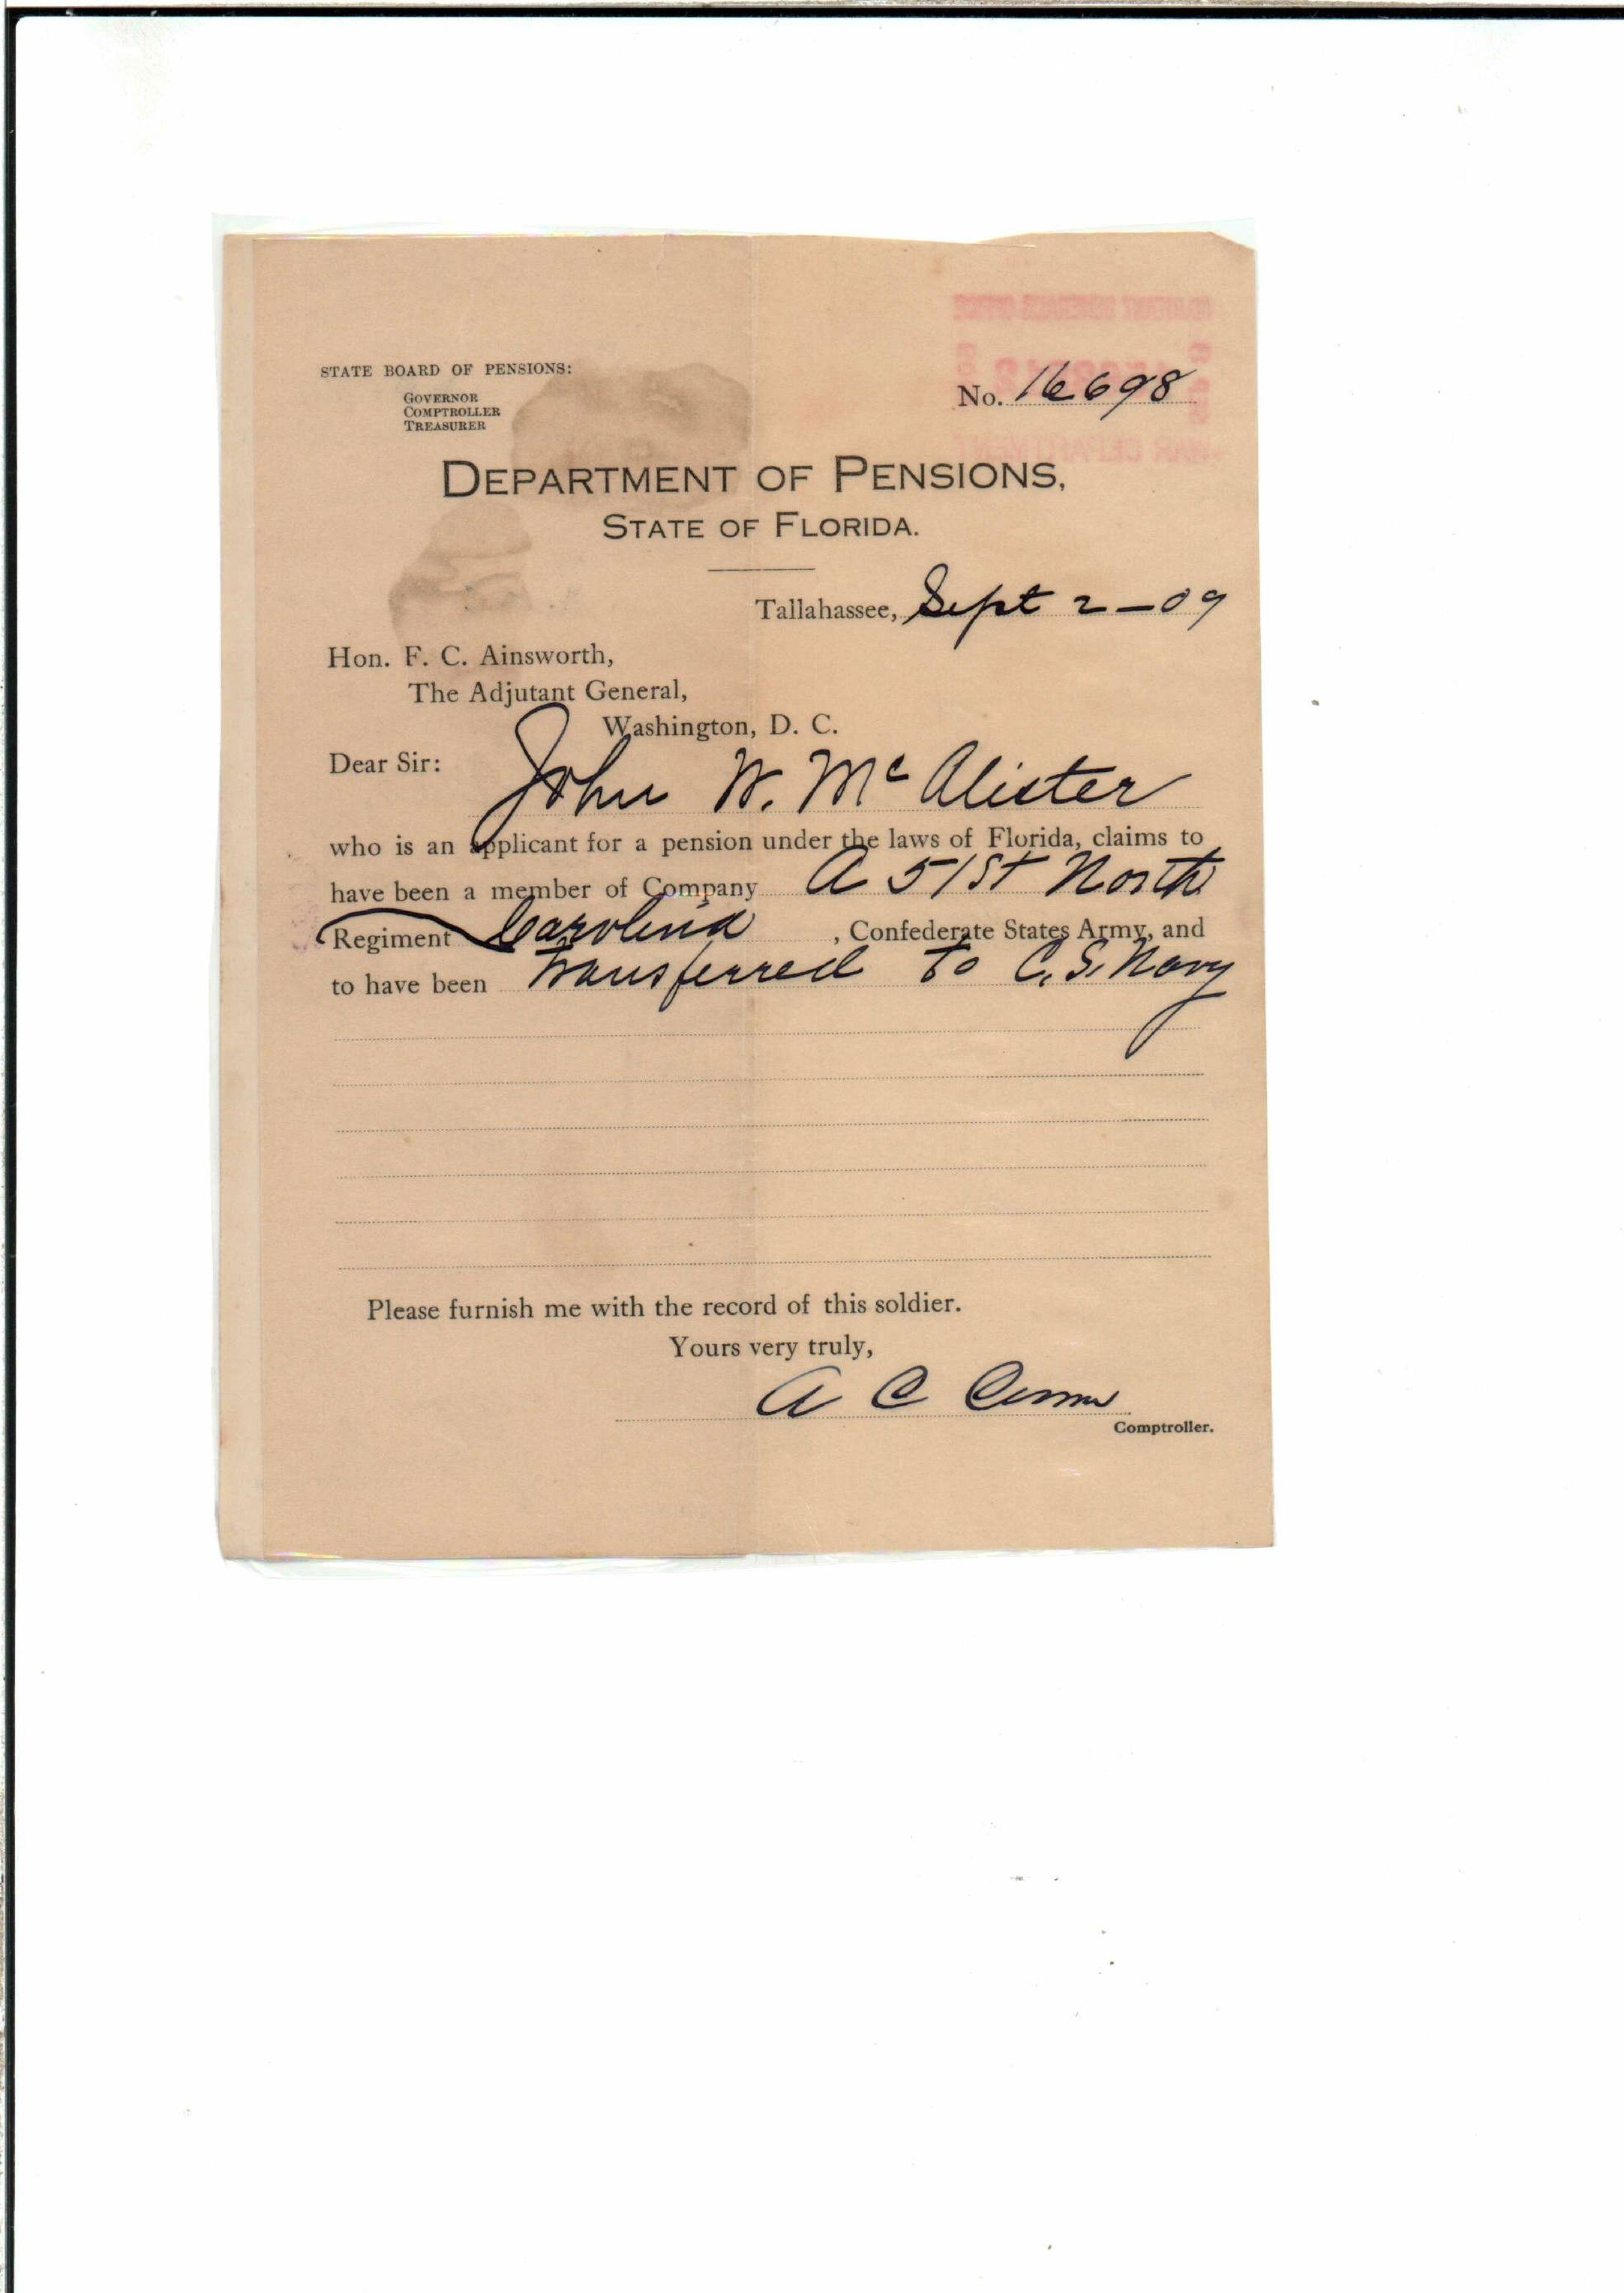 STATE BOARD OF PENSIONS:
GOVERNOR
COMPTROLLER
TREASURER
No. 16698
DEPARTMENT OF PENSIONS,
STATE OF FLORIDA.
Tallahassee, Sept 2-09
Hon. F. C. Ainsworth,
The Adjutant General,
Washington, D. C.
Dear Sir:
John W. McAlister
who is an applicant for a pension under the laws of Florida, claims to
have been a member of Company A 51st North
Regiment Carolina, Confederate States Army, and
to have been transferred to C. S. Navy
Please furnish me with the record of this soldier.
Yours very truly,
A C
Comptroller.